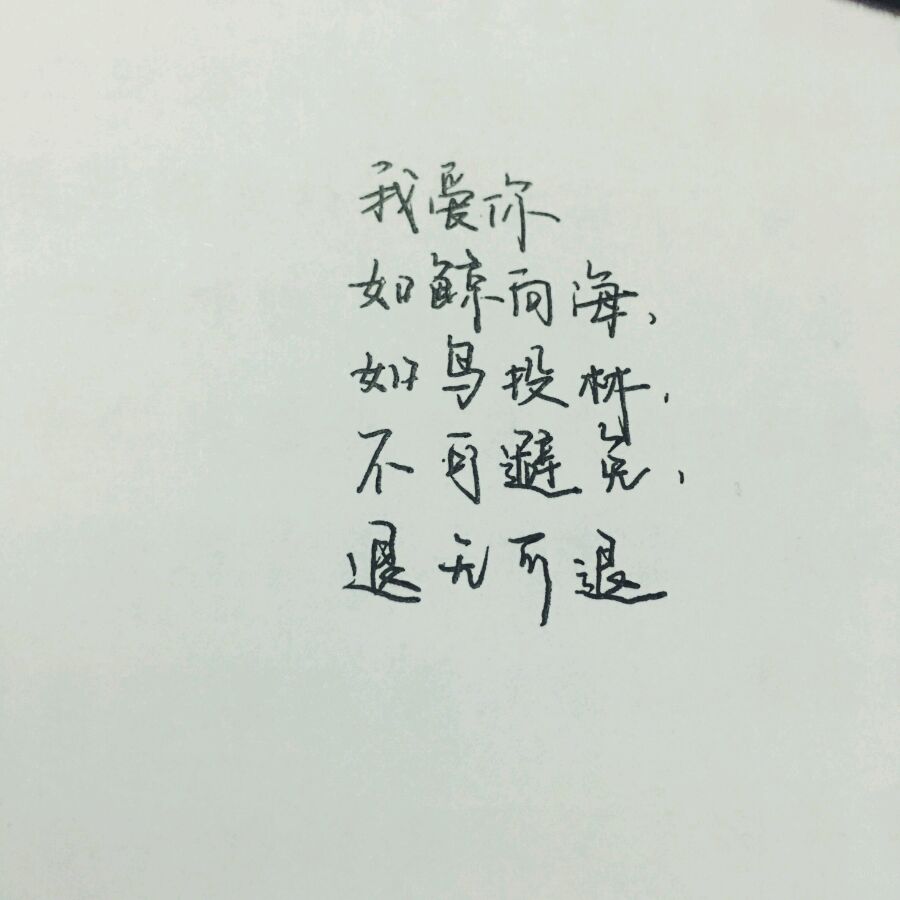 我爱你
如鲸向海，
如鸟投林，
不可避免，
退无可退